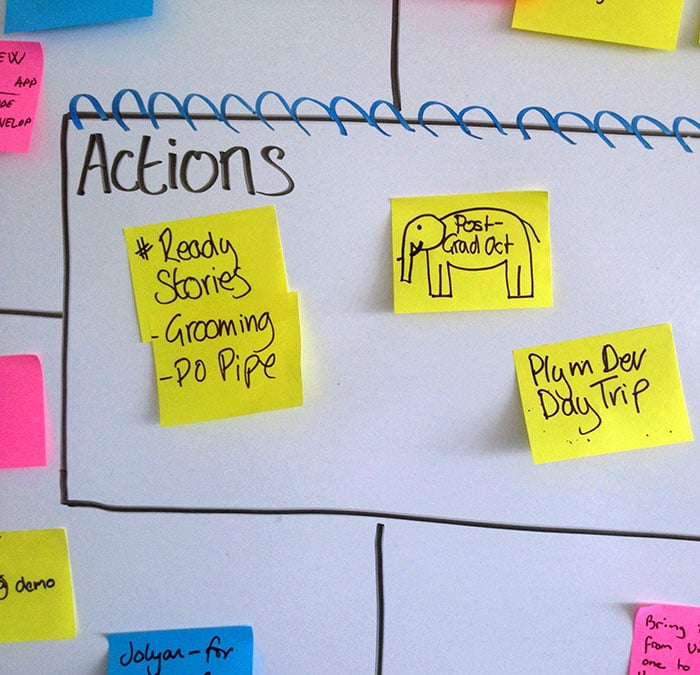 EW
APP
VELOP
Actions
# Ready
Stories
- Grooming
- PO Pipe
Post-
Grad Oct
Plym Dev
Day Trip
demo
Jolyan - for
Bring
from
one to